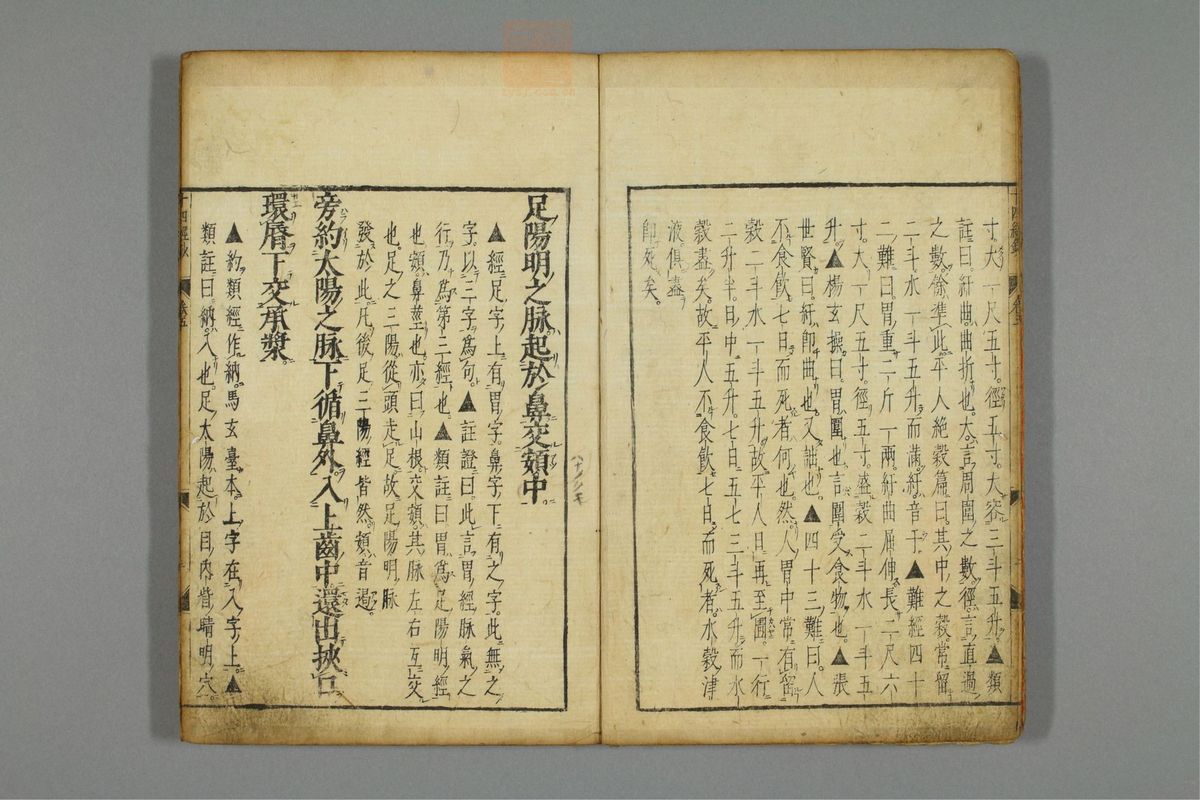 寸大一尺五寸徑五寸大容三斗五升▲類
註曰紆曲曲折也大言周圍之數徑言直過
之數餘準此平人絶穀篇曰其中之穀常留
二斗水一斗五升而滿紆音于▲難經四十
二難曰胃重二斤一兩紆曲屈伸長二尺六
寸大一尺五寸徑五寸盛穀二斗水一斗五
升▲楊玄操曰胃圍也言圍受食物也▲張
世賢曰紆即曲也又詘也▲四十三難曰人
不食飲七日而死者何也然人胃中常有留
穀二斗水一斗五升故平人日再至圊一行
二升半日中五升七日五七三斗五升而水
穀盡矣故平人不食飲七日而死者水穀津
液俱盡
即死矣
足陽明之脉起於鼻交頞中
▲經足字上有胃字鼻字下有之字此無之
字以三字爲句▲註證曰此言胃經脉氣之
行乃爲第三經也▲類註曰胃爲足陽明經
也頞鼻莖也亦曰山根交頞其脉左右互交
也足之三陽從頭走足故足陽明脉
發於此凡後足三陽經皆然頞音遏
旁約太陽之脉下循鼻外入上齒中還出挾口
環唇下交承漿
▲約類經作納馬玄臺本上字在入字上▲
類註曰納入也足太陽起於目内眥睛明穴